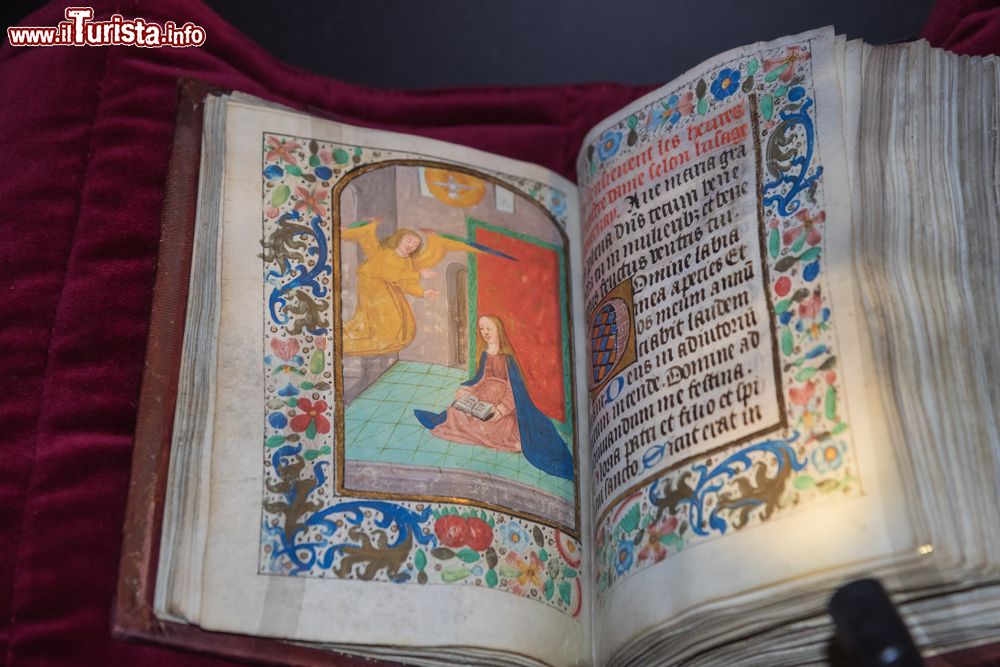 www.ilTurista.info
les heures
dame selon lusage
Aue maria gra
plena dns tecum bene
tu in mulieribz et bene
fructus ventris tui
Domine labia
mea aperies Et
os meum annū
ciabit laudem
Deus in adiutoriū
meum intende. Domine ad
iuuandum me festina.
Gloria patri et filio et spi
sancto Sicut erat in